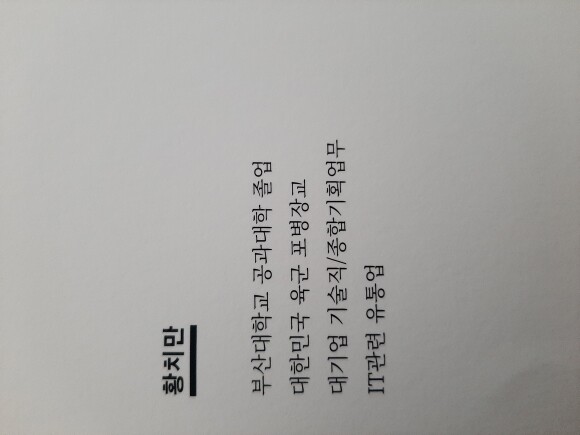 황치만
부산대학교 공과대학 졸업
대한민국 육군 포병장교
대기업 기술직/종합기획업무
IT관련 유통업